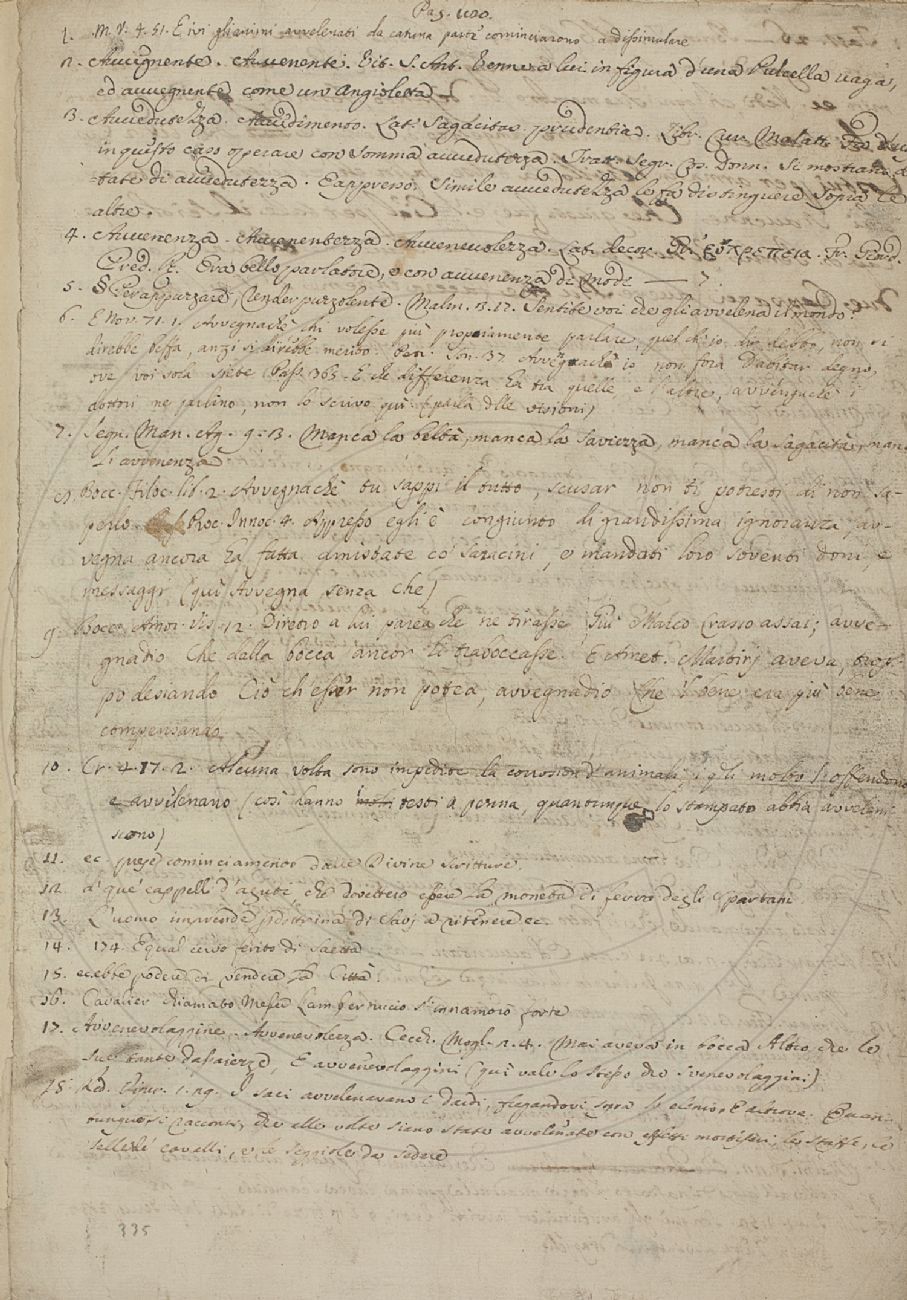 Pag. 1100.
1. M. V. 4. 51. E ivi gli animi avvelenati da catuna parte cominciarono a dissimulare
2. Avvignente. Avvenente. Vit. S. Ant. Venne a lui in figura d'una Pulcella vaga,
ed avvegnente come un Angioletta
3. Avvedutezza. Avvedimento. Lat. Sagacitas prudentia. Libr. Cur. Malatt.
in questo caso operare con somma avvedutezza. Tratt. Segr. Cos. Donn. Si mostrano
tate di avvedutezza. E appresso. Simile avvedutezza le fa distinguere sopra le
altre.
4. Avvenenza. Avvenentezza. Avvenevolezza. Lat. decor. Gr. εὐπρέπεια. Fr. Giord.
Pred. R. Era bello parlatore, e con avvenenza di mode — 7.
5. § Per appuzzare, render puzzolente. Malm. Sentite voi che gli avvelena il mondo.
6. E Nov. 71. 1. Avvegnachè chi volesse più propiamente parlare, quel ch'io dir debbo, non si
direbbe beffa, anzi si direbbe merito. Petr. Son. 37 Avvegnachè io non fora D'abitar degno,
ove voi sola siete. Pass. 363. E che differenza ha tra quelle e l'altre, avvengachè i
dottori ne parlino, non lo scrivo qui (parla delle visioni)
7. Segn. Man. Ag. 9. 3. Manca la beltà, manca la saviezza, manca la sagacità, man-
ca l'avvenenza
8. Bocc. Filoc. lib. 2. Avvegnachè tu sappi il tutto, scusar non ti potresti di non sa-
perlo. Proc. Innoc. 4. Appresso egli è congiunto di grandissima ignoranza, av-
vegna ancora ha fatta amistate co' saracini, e mandati loro soventi doni, e
messaggi (qui Avvegna senza che)
9. Bocc. Amor. Vis. 12. Dietro a lui parea che ne tirasse Più Marco Crasso assai; avve-
gnadio Che dalla bocca ancor li traboccasse. E Aret. Martirj aveva, trop-
po desiando Ciò ch'esser non potea, avvegnadio Che 'l bene era più bene
compensando.
10. Cr. 4. 17. 2. Alcuna volta sono impedite la corrosion d'animali, i quali molto l'offendono
e avvilenano (così hanno molti testi a penna, quantunque lo stampato abbia avveleni-
scono)
11. ec. prese cominciamento dalle Divine scritture.
12. a' que' cappelli d'aguti, che dovettero essere la moneta di ferro degli Spartani
13. L'uomo imprende dottrina di Savj a ritenere ec.
14. 174. E qual cervo ferito di saetta
15. ecebbe podere di vendere la Città.
16. Cavalier chiamato Messer Lambertuccio s'innamorò forte
17. Avvenevolaggine. Avvenevolezza. Cecch. Mogl. 2. 4. Mai aveva in bocca Altro, che le
sue tante dassaiezze, E avvenevolaggini (qui vale lo stesso che svenevolaggini).
18. Red. Vip. 1. 29. I saci avvelenavano i dardi, fregandovi sopra E altrove. Quan-
tunque si racconti, che alle volte sieno state avvelenate con effetti mortiferi, le staffe, le
selle de' cavalli, e le seggiole da sedere
335